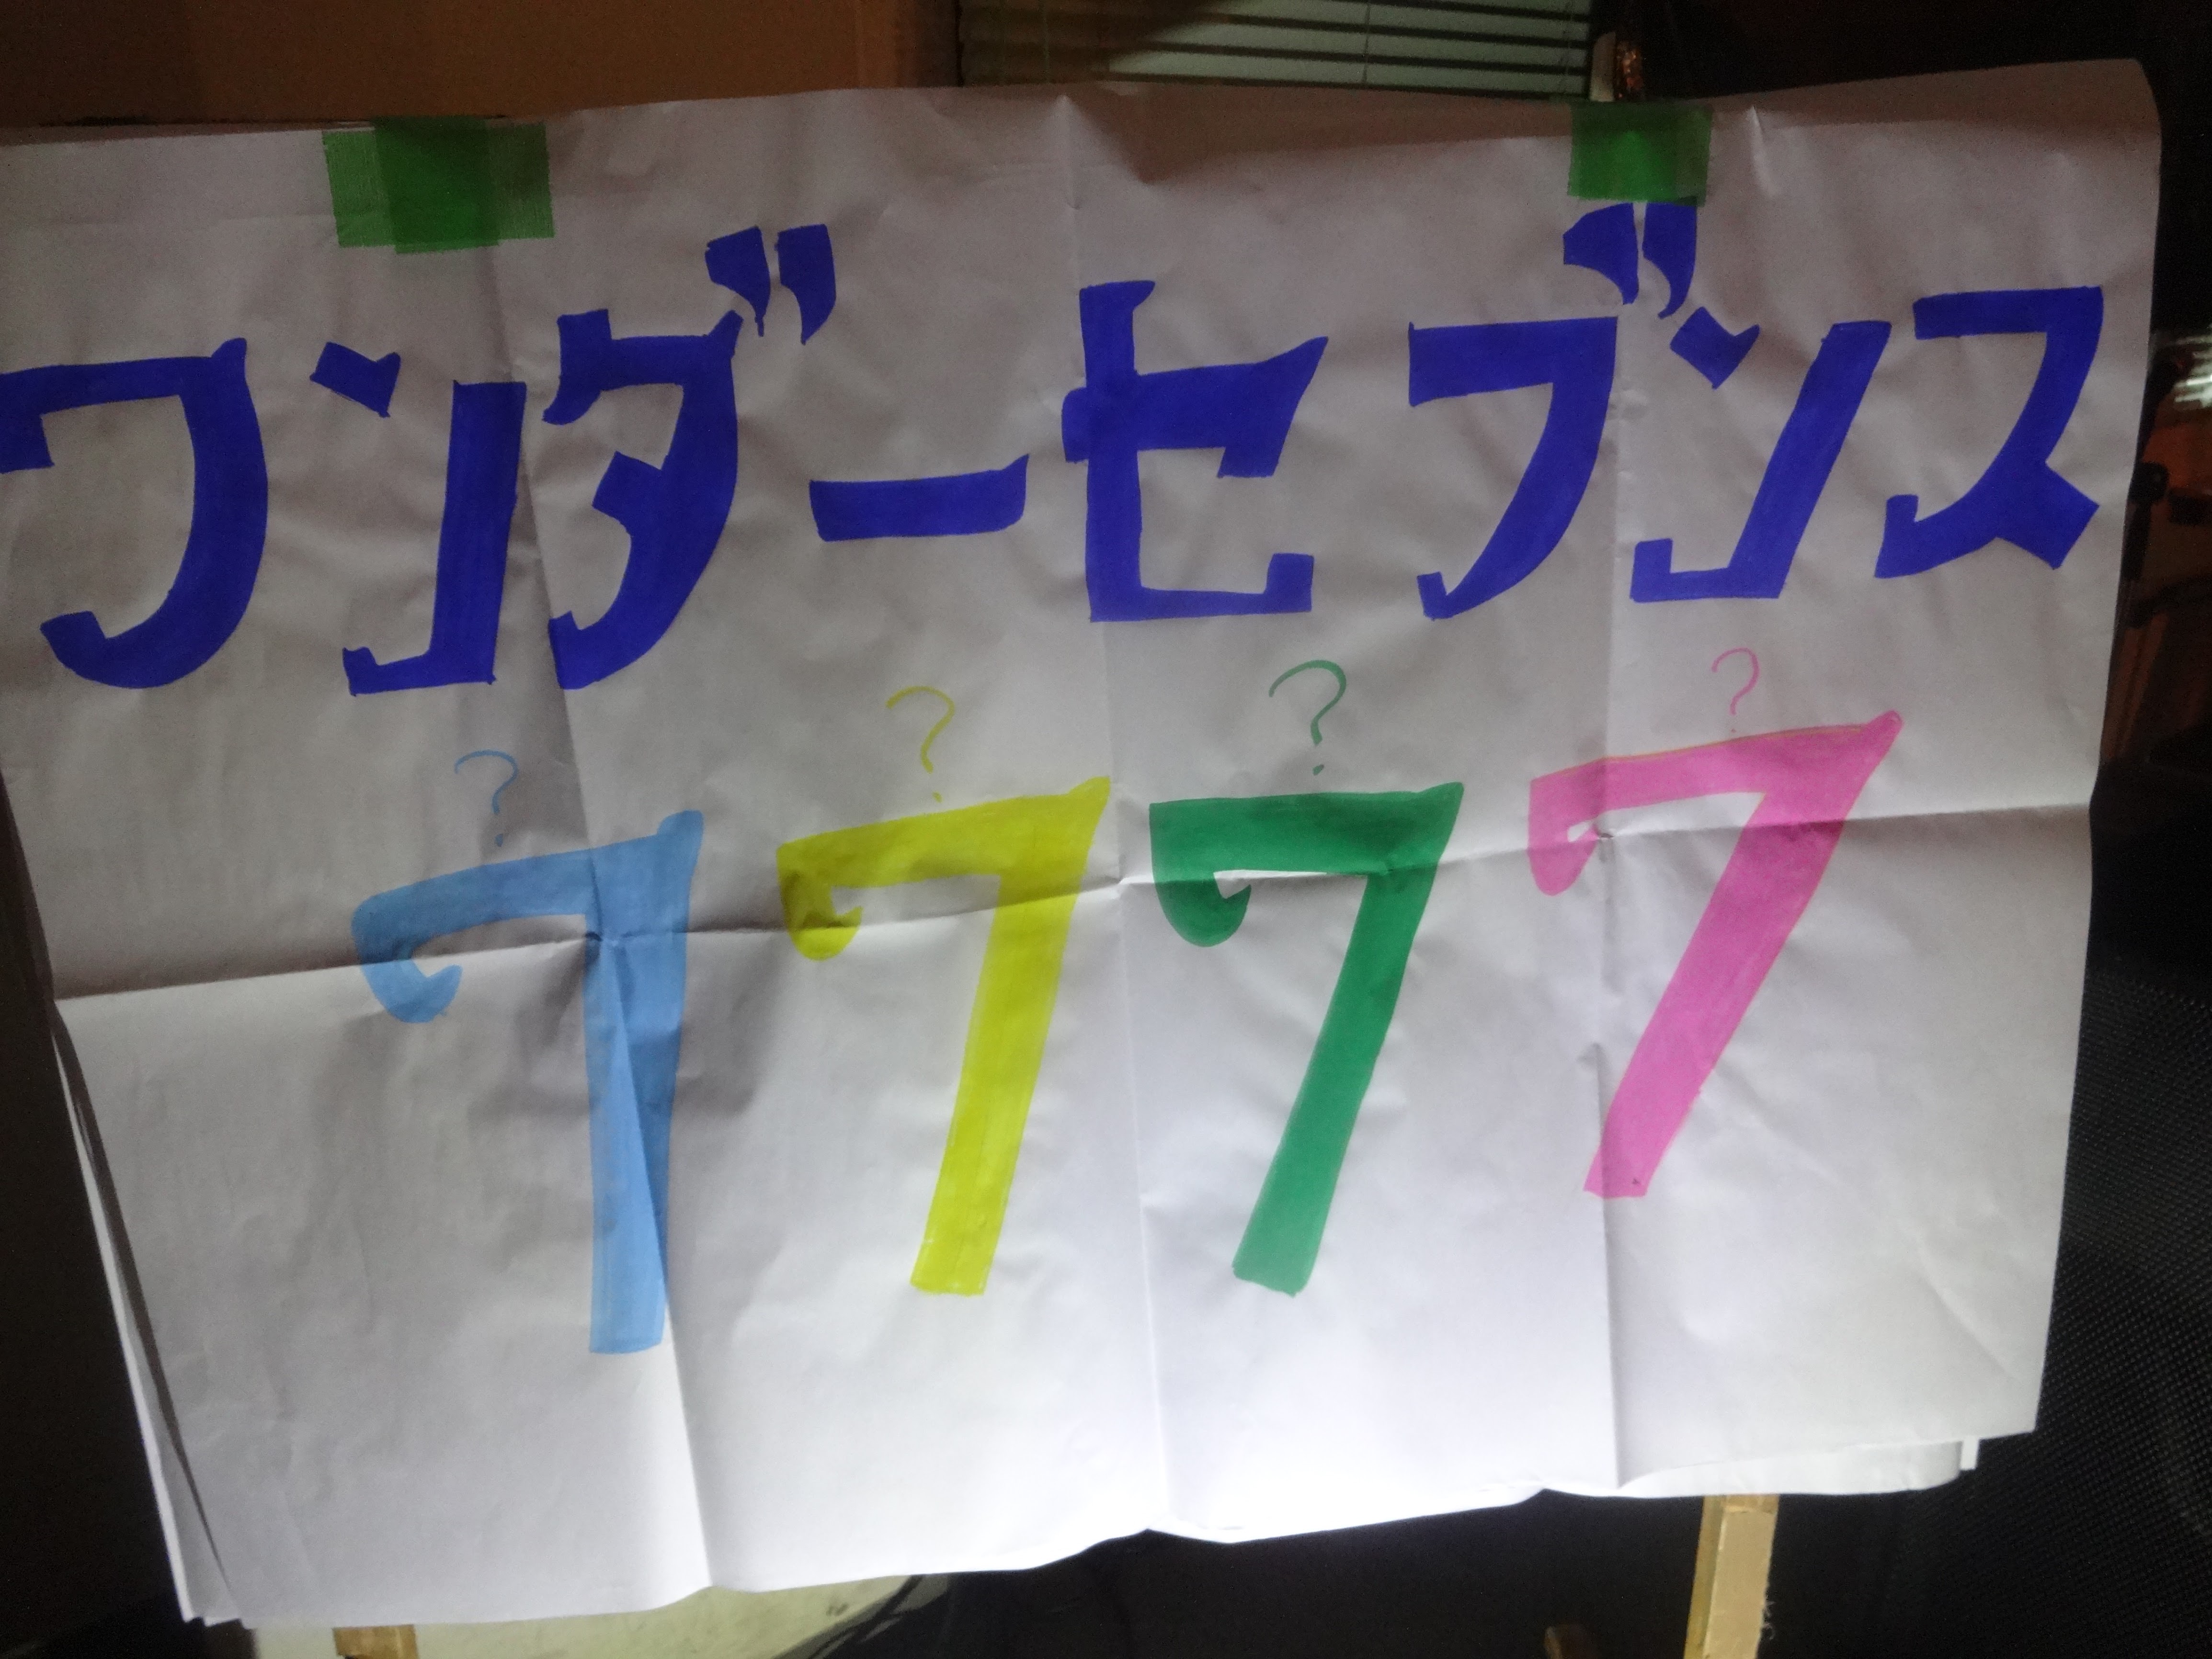 ワンダーセブンス
? ? ? ?
7 7 7 7